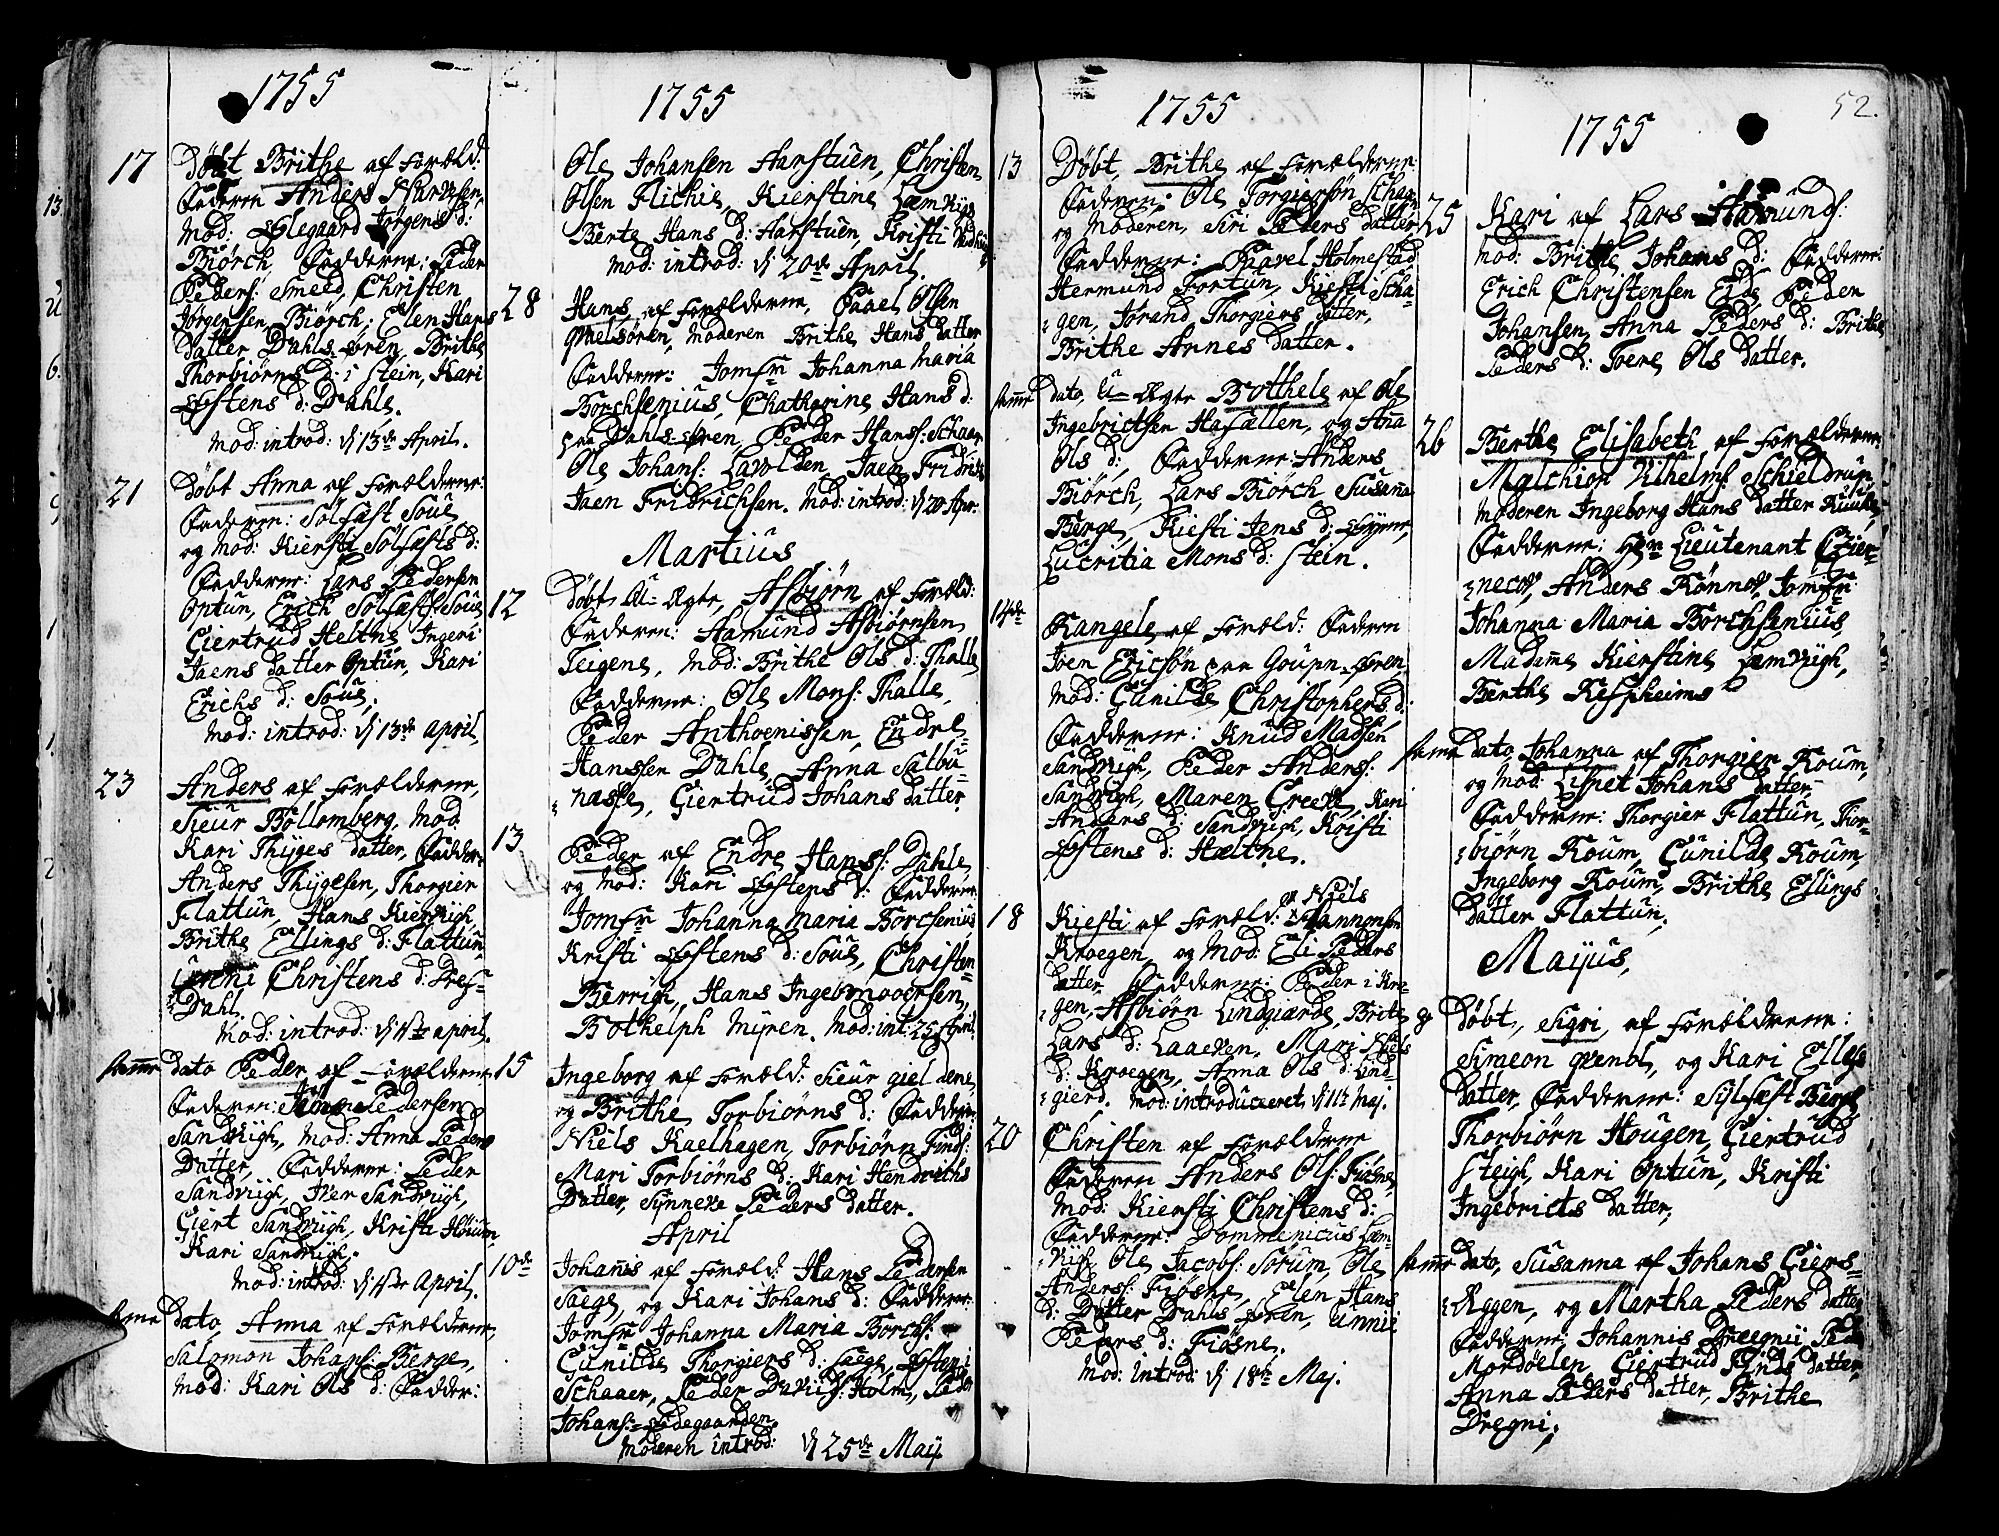 1755
17 Döbt Brithe af Foræld:
Faderen Anders
Mod: Jørgens d:
Biørch, Fadderne: Peder
Peders: Smed, Christen
Jørgensen Biørch; Elen Hans
datter Dahlsøren, Brithe
Thorbiørns d: i Stein, Kari
d: Dahle.
Mod: introd: d 13de April.
21 Döbt Anna af Forælderne:
Faderen: Solfast Soue
og Mod: Kiersti Solfasts d:
Fadderne: Lars Pedersen
Optun, Erich Solfasts: Soue
Giertrud Heltne, Ingeri
Jaens datter Optun, Kari
Erichs d: Soue,
Mod: introd: d 13de April,
23 Anders af Forælderne,
Sieur Bollomberg, Mod
Kari Thyges datter, Fadder:
Anders Thygesen, Thorgier
Flattun, Hans
Brithe Ellings d: Flattun,
Christens d: Dres-
Dahl.
Mod: introd: d April.
samme dato Peder af Forælderne
Faderen: Pedersen
Sandvigh, Mod: Anna Peders
Datter, Fadderne: Peder
Sandviigh, Iver Sandviigh,
Giert Sandviigh, Kristi
Kari Sandviigh.
Mod: introd: d April.
same dato, Anna af Forælderne,
Salomon Johans: Berge,
Mod: Kari Ols d: Fadder:
1755
Ole Johansen Harstuen, Christen
Olsen Flichie, Kierstine Lemviig
Berte Hans d: Harstuen, Kristi
Mod: introd: d 20de April.
28 Hans af Forælderne, Paael Olsen
Moderen Brithe Hans datter
Fadderne: Jomfr Johanna Maria
Borchsenius, Chatharine Hans d:
paa Dahlsøren, Peder Hanss: Schaar
Ole Johans: Jaen Fridrichs
Jaen Fridrichsen. Mod: introd: d 20 Apr.
Martius
12 Döbt U-Ægte, Asbiørn af Foræld:
Faderen: Aamund Asbiørnsen
Teigene, Mod: Brithe Ols d: Thalle
Fadderne: Ole Mons: Thalle,
Peder Anthoenissen, Endre
Hanssen Dahle, Anna Salbu-
naase, Giertrud Johans datter.
13 Peder af Endre Hanss: Dahle,
og Mod: Kari d: Fadderne
Jomfr Johanna Maria Borcsenius,
Kristi d: Soue, Christen
Berrigh, Hans
Myren. Mod: int: 25 April
15 Ingeborg af Foræld: Sieur
og Brithe Torbiørns d: Fadderne:
Niels Kaelhagen, Torbiørn Finds:
Mari Torbiørns d: Kari Hendrichs
Datter, Sinneve Peders datter.
April
10de Johannis af Foræld: Hans Pedersen
Saege, og Kari Johans d: Fadderne:
Jomfr Johanna Maria Borchs:
Gunilde Thorgiers d: Saege,
Schaaer, Peder Davids: Holm, Peder
Johans:
Moderen introd: d 25de Maij
1755
13 Döbt, Brithe af Forælderne:
Faderen: Ole Torgiersøn Schaa
og Moderen, Siri Peders datter
Fadderne: Paavel Holmestad
Hermund Fortun, Kiesti Scha-
gen, Jorand Thorgiers datter,
Brithe Annes datter.
samme dato, U-Ægte Bothele af Ole
Ingebrictsen Hafællen, og Anna
Ols d: Fadderne: Anders
Biørch, Lars Biørch Susanna
Berge, Kiesti Jens d:
Lucritia Mons d: Stein.
14de Rangele af Foræld: Faderen
Joen Ericsøn paa Goupnsøren
Mod: Gunilde Christophers d:
Fadderne: Knud Madsen
Sandvigh, Peder Anderss:
Sandvigh, Maren Greve, Kari
Anders d: Sandvigh, Kristi
d: Hæltne.
18 Kiesti af Foræld: Niels
Kroegen, og Mod: Eli Peders
datter, Fadderne: Peder i Kro-
gen, Asbiørn Lindgiærde, Brite
Lars d: Mari Niels
d: Kroegen, Anna Ols d: Lind-
gierd. Mod: introduceret d 11te Maj.
20 Christen af Forælderne
Faderen Anders Ols: Fiøsne
Mod: Kiersti Christens d:
Fadderne: Dommenicus Lem-
vigh Ole Jacobs: Sorum, Ole
Anderss: Fiøsne, Elen Hans
d: Datter Dahlsøren, Annie
Peders d: Fiøsne.
Mod: introd: d 18te Maj.
1755
52.
25 Kari af Lars Aamunds:
Mod: Brithe Johans d: Fadderne:
Erich Christensen Eide Peder
Johansen, Anna Peders d: Brithe
Peders d: Toere Ols datter.
26 Berthe Elisabeth af Forælderne
Malchior Vilhelms Schieldrup
Moderen Ingeborg Hans datter
Fadderne: Hr Lieutenant
Anders Rønnov, Jomfr
Johanna Maria Borchsenius,
Madame Kierstine Lemviigh,
Berthe
samme dato Johanna af Thorgier Roum,
og Mod: Lisbet Johans datter
Fadderne: Thorgier Flattun, Thor-
biørn Roum, Gunilde Roum,
Ingeborg Roum, Brithe Ellings
datter Flattun,
Majus,
Döbt, Sigri, af Forælderne:
Simeon og Kari
datter, Fadderne: Sylfæst Berge
Thorbiørn Hougen, Giertrud
Steigh, Kari Optun, Kristi
Ingebricts datter,
samme dato, Susanna af Johans
og Martha Peders datter
Fadderne: Johannis
Giertrud datter,
Anna Peders datter, Brithe
Dregni,